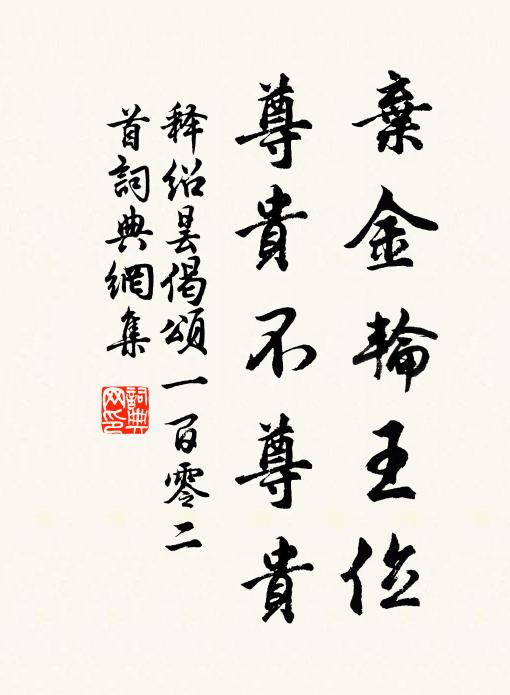 棄金輪王位
尊貴不尊貴
释紹曇偈頌一百零二
首詞典網集
詞典网印